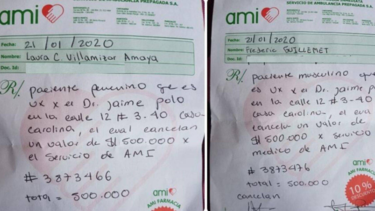 ami
SERVICIO DE AMBULANCIA PREPAGADA S.A.
Fecha: 21 / 01 / 2020
Nombre: Laura C Villamizar Amaya
Doc. Id:
R/ paciente femenino qe es
vx x el Dr. jaime polo
en la calle 12 # 3-40 casa
carolina, el cual cancelan
un valor de $ 500.000 x
el servicio de AMI
# 3873466
total = 500.000
ami
AMI FARMACIA
ami
SERVICIO DE AMBULANCIA PREPAGADA S.A.
Fecha: 21/01/2020
Nombre: Frederic
Doc. Id:
R/ paciente masculino qe
es vx x el Dr jaime polo
en la calle 12 # 3-40 casa
carolina, el cual
cancelan un valor de
$ 500.000 x servicio
medico de AMI
# 3873476
total = 500.000
cancelan
ami
AMI FARMACIA
10%